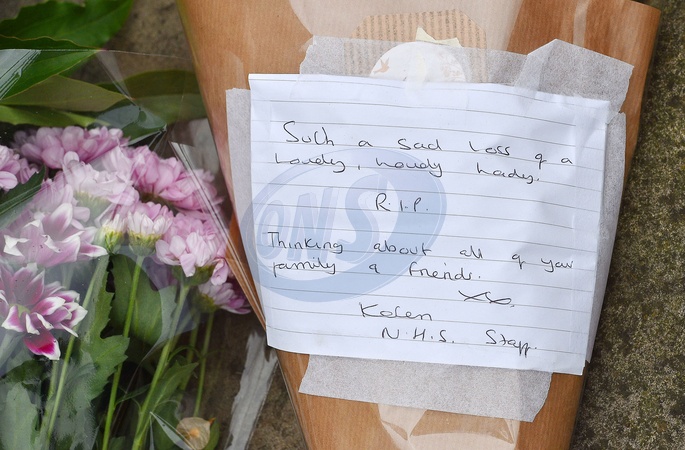 Such a sad loss of a
lovely, lovely lady.
R.I.P.
Thinking about all of your
family & friends.
xx
Karen
N.H.S. Staff.
ONS